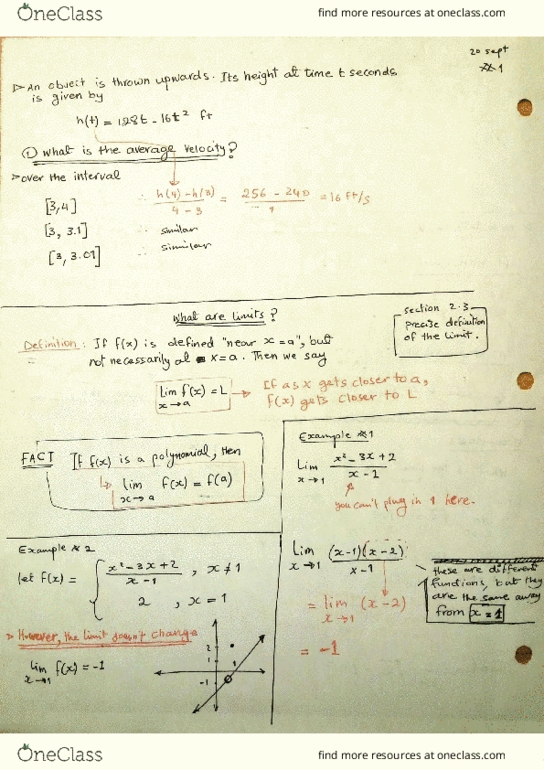 OneClass
find more resources at oneclass.com
20 sept
※1
▷ An object is thrown upwards. Its height at time t seconds
is given by
h(t) = 128t - 16t² ft
① What is the average velocity?
▷ over the interval
[3,4] ∴ h(4) - h(3) / 4 - 3 = 256 - 240 / 1 = 16 ft/s
[3, 3.1] ∴ similar
[3, 3.01] ∴ similar
What are limits?
section 2.3
precise definition
of the limit.
Definition: If f(x) is defined "near x = a", but
not necessarily at x = a. Then we say
lim f(x) = L
x→a
If as x gets closer to a,
f(x) gets closer to L
FACT If f(x) is a polynomial, then
↳ lim f(x) = f(a)
x→a
Example ※1
Lim x² - 3x + 2 / x - 1
x→1
you can't plug in 1 here.
Lim (x-1)(x-2) / x - 1
x→1
= lim (x-2)
x→1
= -1
these are different
functions, but they
are the same away
from x = 1
Example ※2
let f(x) = { x² - 3x + 2 / x - 1 , x ≠ 1
2 , x = 1
▷ However, the limit doesn't change
lim f(x) = -1
x→1
2
1
1
-1
OneClass
find more resources at oneclass.com